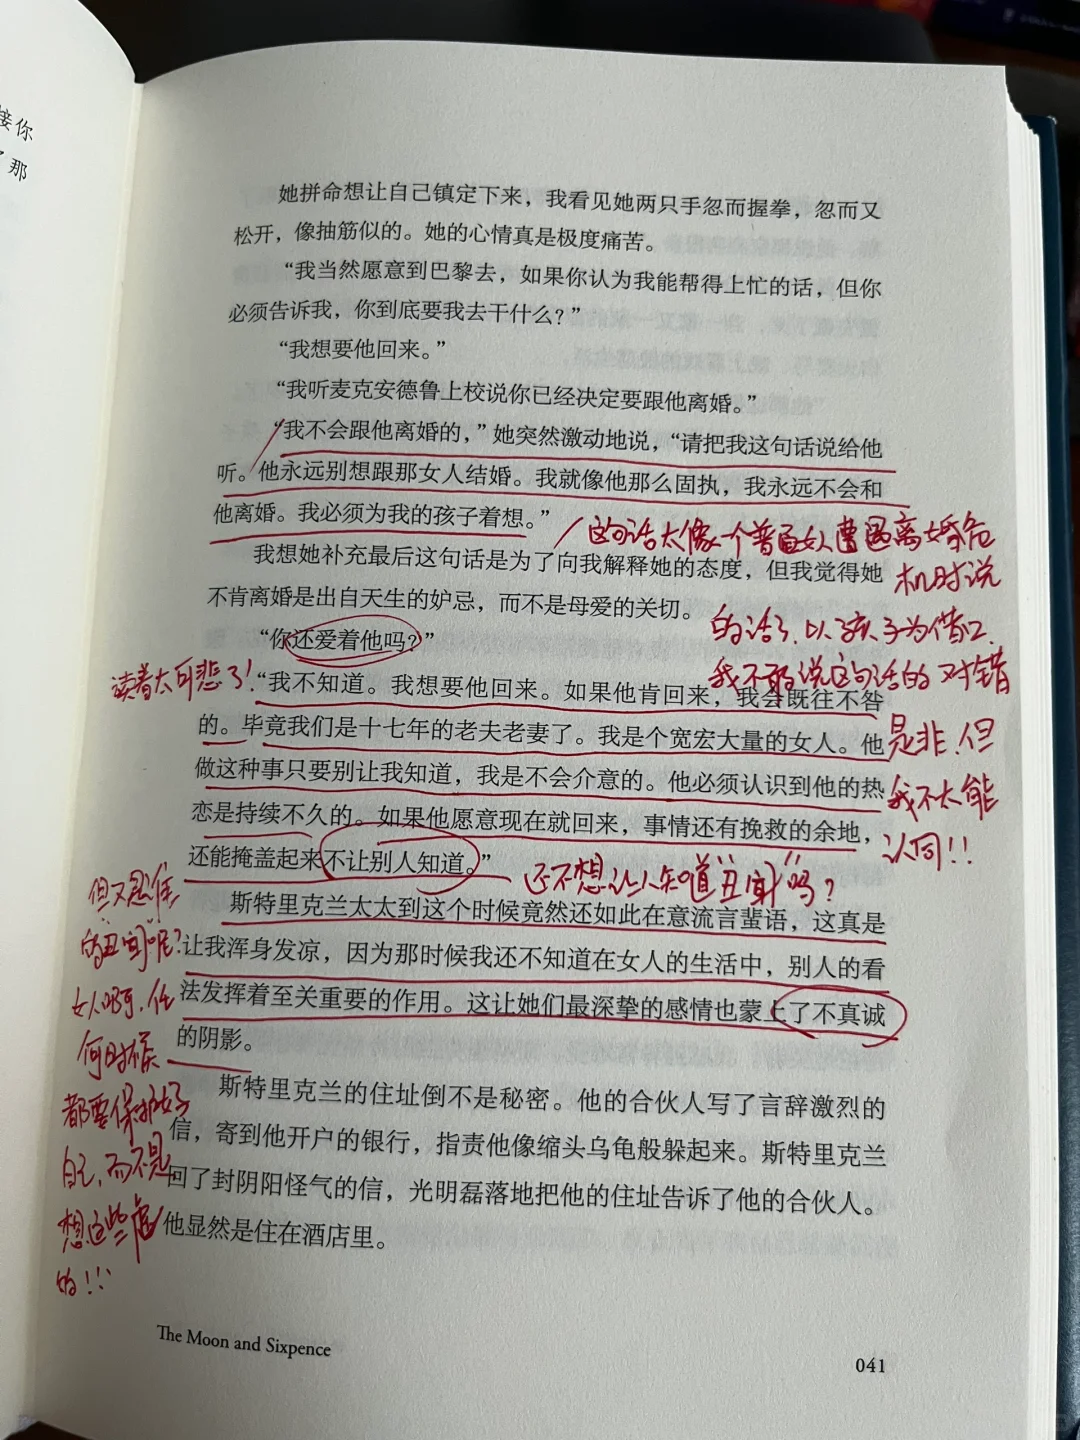 接你
了那
她拼命想让自己镇定下来，我看见她两只手忽而握拳，忽而又
松开，像抽筋似的。她的心情真是极度痛苦。
“我当然愿意到巴黎去，如果你认为我能帮得上忙的话，但你
必须告诉我，你到底要我去干什么？”
“我想要他回来。”
“我听麦克安德鲁上校说你已经决定要跟他离婚。”
“我不会跟他离婚的，”她突然激动地说，“请把我这句话说给他
听。他永远别想跟那女人结婚。我就像他那么固执，我永远不会和
他离婚。我必须为我的孩子着想。”
这句话太像一个普通女人遭遇离婚危
机时说
的话了，以孩子为借口，
我不敢说这句话的对错
是非，但
我不太能
认同！！
我想她补充最后这句话是为了向我解释她的态度，但我觉得她
不肯离婚是出自天生的妒忌，而不是母爱的关切。
“你还爱着他吗？”
读着太可悲了！
“我不知道。我想要他回来。如果他肯回来，我会既往不咎
的。毕竟我们是十七年的老夫老妻了。我是个宽宏大量的女人。他
做这种事只要别让我知道，我是不会介意的。他必须认识到他的热
恋是持续不久的。如果他愿意现在就回来，事情还有挽救的余地，
还能掩盖起来不让别人知道。”
还不想让人知道“丑闻”吗？
但又是谁
的丑闻呢？
女人啊，任
何时候
都要保护好
自己，而不是
想这些虚
的！！
斯特里克兰太太到这个时候竟然还如此在意流言蜚语，这真是
让我浑身发凉，因为那时候我还不知道在女人的生活中，别人的看
法发挥着至关重要的作用。这让她们最深挚的感情也蒙上了不真诚
的阴影。
斯特里克兰的住址倒不是秘密。他的合伙人写了言辞激烈的
信，寄到他开户的银行，指责他像缩头乌龟般躲起来。斯特里克兰
回了封阴阳怪气的信，光明磊落地把他的住址告诉了他的合伙人。
他显然是住在酒店里。
The Moon and Sixpence
041